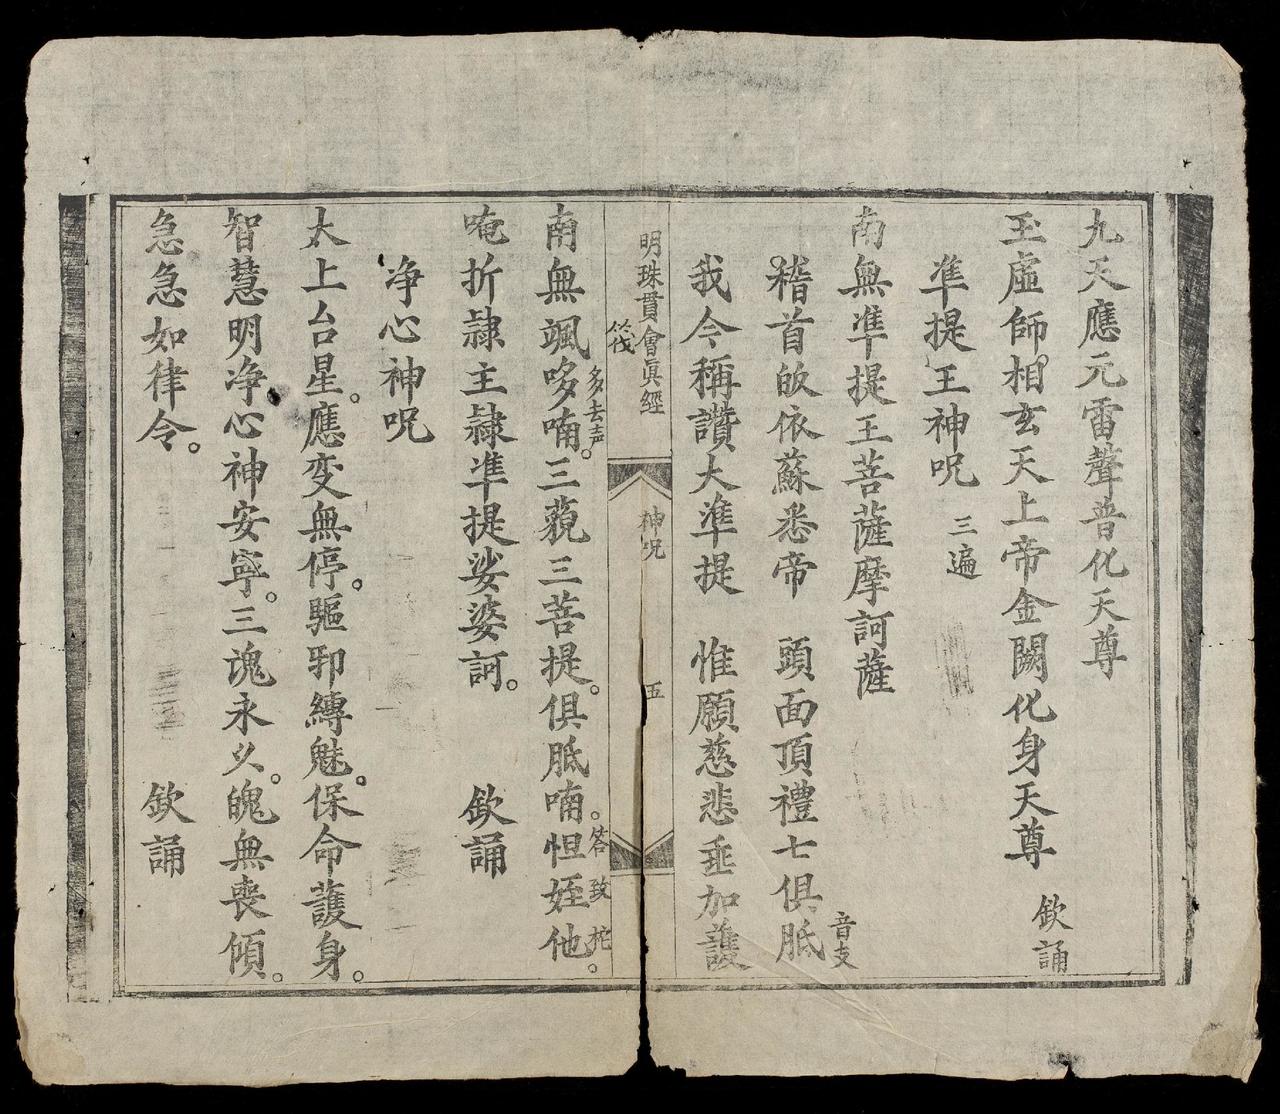 九天應元雷聲普化天尊
玉虛師相玄天上帝金闕化身天尊 欽誦
準提王神呪 三遍
南無準提王菩薩摩訶薩
稽首皈依蘇悉帝 頭面頂禮七俱胝 音支
我今稱讚大準提 惟願慈悲垂加護
明珠貫會眞經 神呪 五
南無颯哆喃。三藐三菩提。俱胝喃。怛姪他。
多去声 答 致 柁
唵折隷主隷凖提娑婆訶。 欽誦
净心神呪
太上台星。應变無停。驅邪縛魅。保命護身。
智慧明净心神安寧。三魂永久。魄無喪傾。
急急如律令。 欽誦